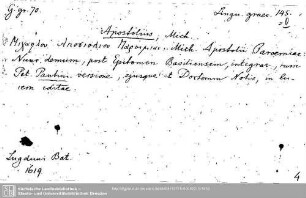 G. gr. 70.
Lingu. graec. 145.
Apostolius, Mich.
Μιχαήλου Ἀποστολίου Παροιμίαι. Mich. Apostolii Paroemiae:
Nunc demum, post Epitomen Basiliensem, integrae, cum
Pet. Pantini versione, ejusque et Doctorum Notis, in lu-
cem editae.
Lugduni Bat.
1619.
4